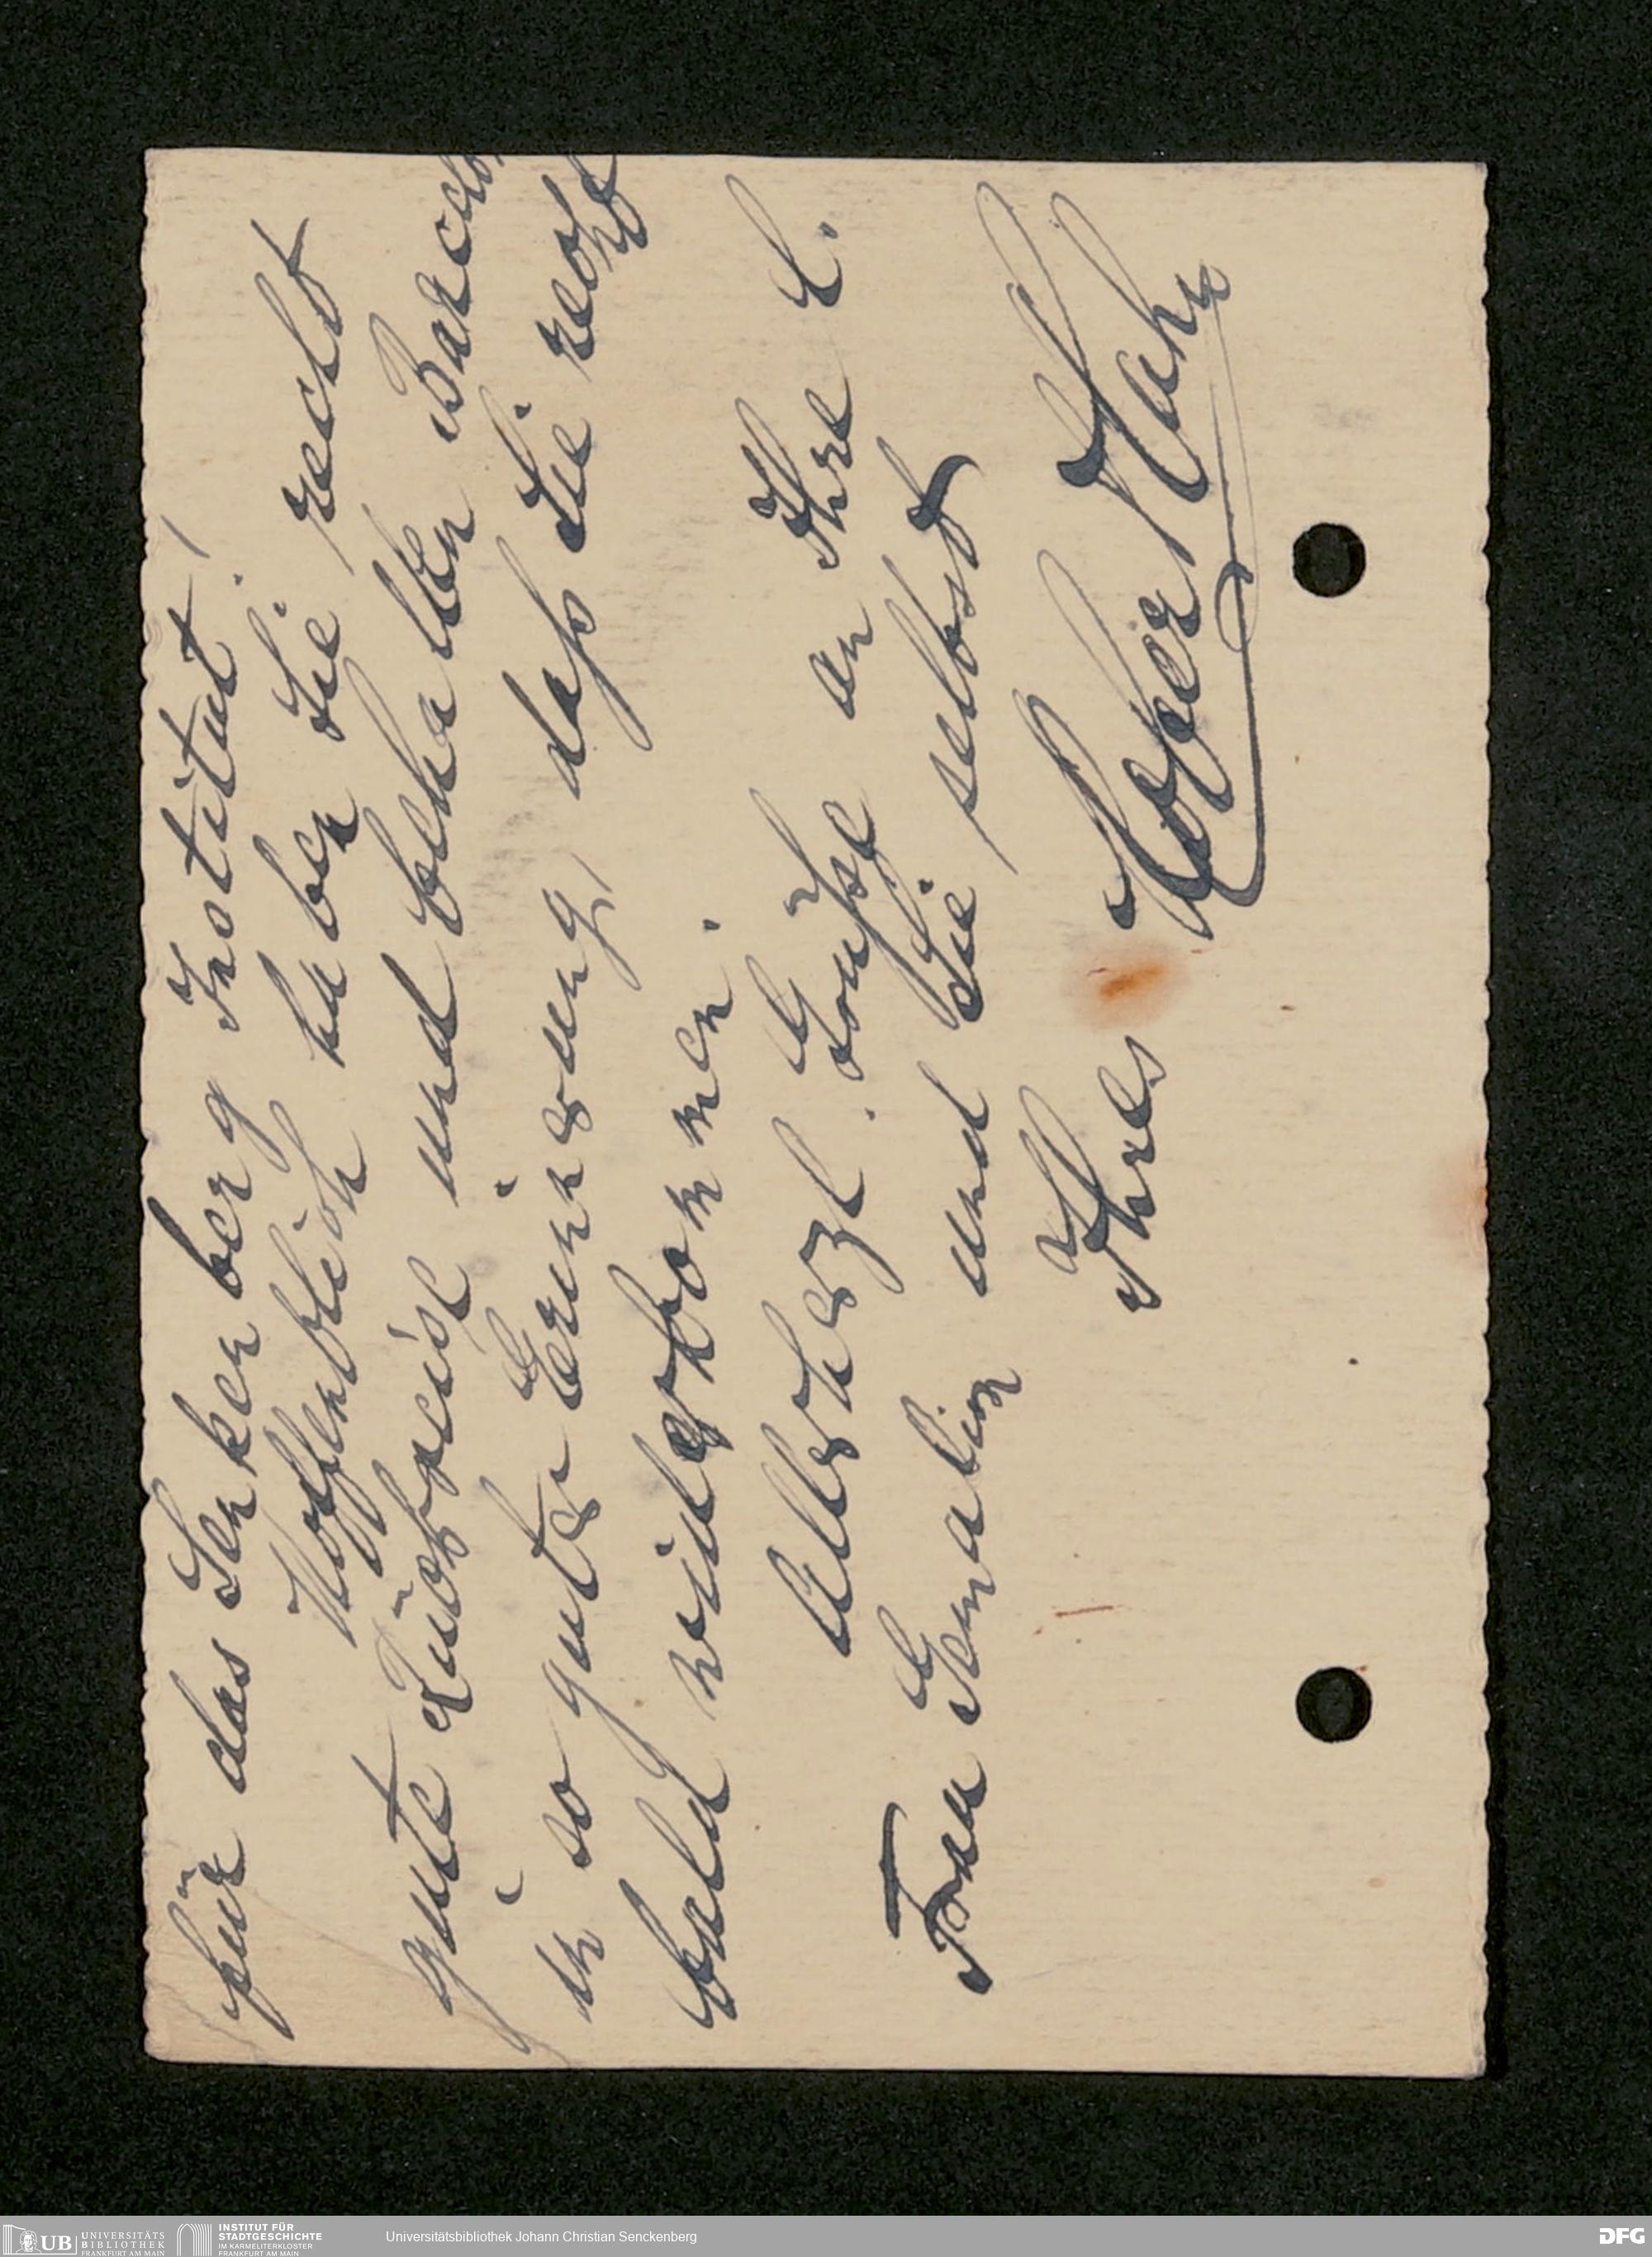 für das Senkenberg Institut!
Hoffentlich haben Sie recht
gute Rückreise und behalten
in so guter Erinnerung, daß Sie recht
bald wiederkommen.
Allerherzl. Grüße an Ihre l.
Frau Gemalin und Sie selbst
Ihres
UB UNIVERSITÄTS
BIBLIOTHEK
FRANKFURT AM MAIN
INSTITUT FÜR
STADTGESCHICHTE
IM KARMELITERKLOSTER
FRANKFURT AM MAIN
Universitätsbibliothek Johann Christian Senckenberg
DFG